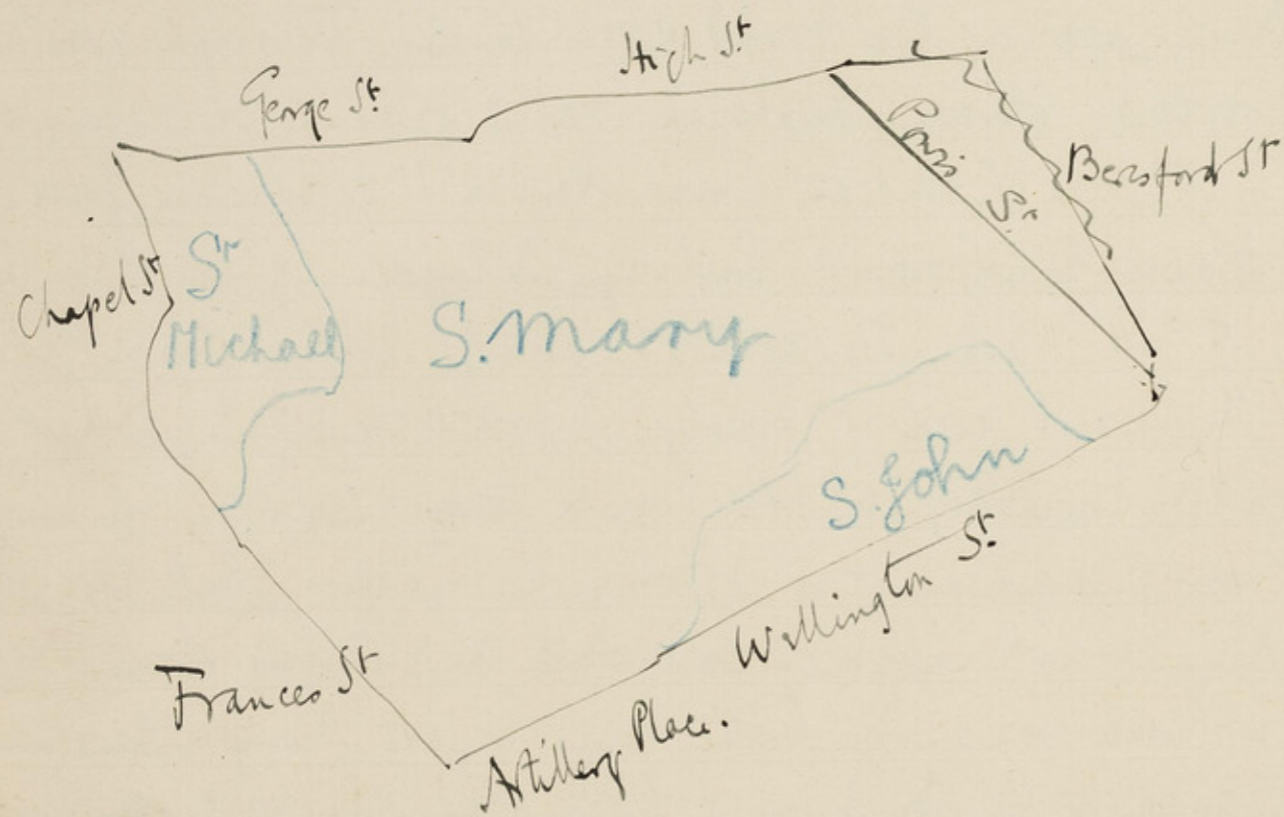 High St.
George St.
Beresford St
St
Chapel St
St
Michael
S. Mary
S. John
Wellington St.
Frances St
Artillery Place.